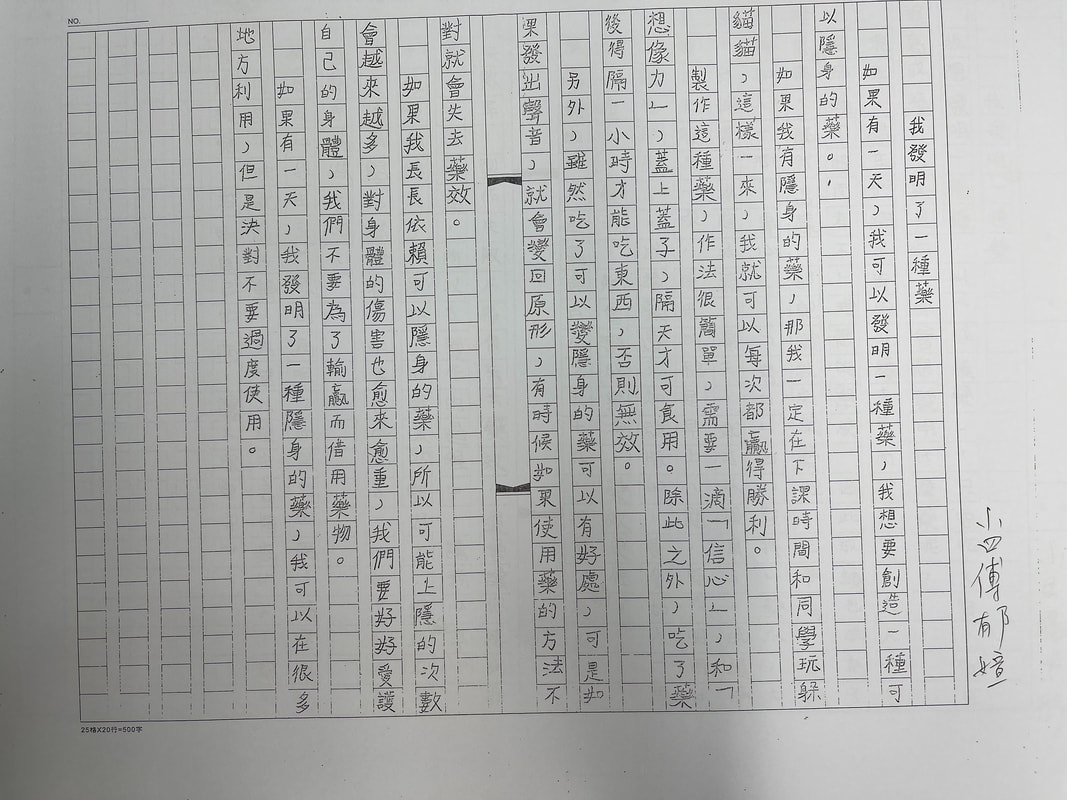 NO.
小四傅郁媗
我發明了一種藥
如果有一天，我可以發明一種藥，我想要創造一種可
以隱身的藥。，
如果我有隱身的藥，那我一定在下課時間和同學玩躲
貓貓，這樣一來，我就可以每次都贏得勝利。
製作這種藥，作法很簡單，需要一滴「信心」，和「
想像力」，蓋上蓋子，隔天才可食用。除此之外，吃了藥
後得隔一小時才能吃東西，否則無效。
另外，雖然吃了可以變隱身的藥可以有好處，可是如
果發出聲音，就會變回原形，有時候如果使用藥的方法不
對就會失去藥效。
如果我長長依賴可以隱身的藥，所以可能上隱的次數
會越來越多，對身體的傷害也愈來愈重，我們要好好愛護
自己的身體，我們不要為了輸贏而借用藥物。
如果有一天，我發明了一種隱身的藥，我可以在很多
地方利用，但是決對不要過度使用。
25格X20行=500字